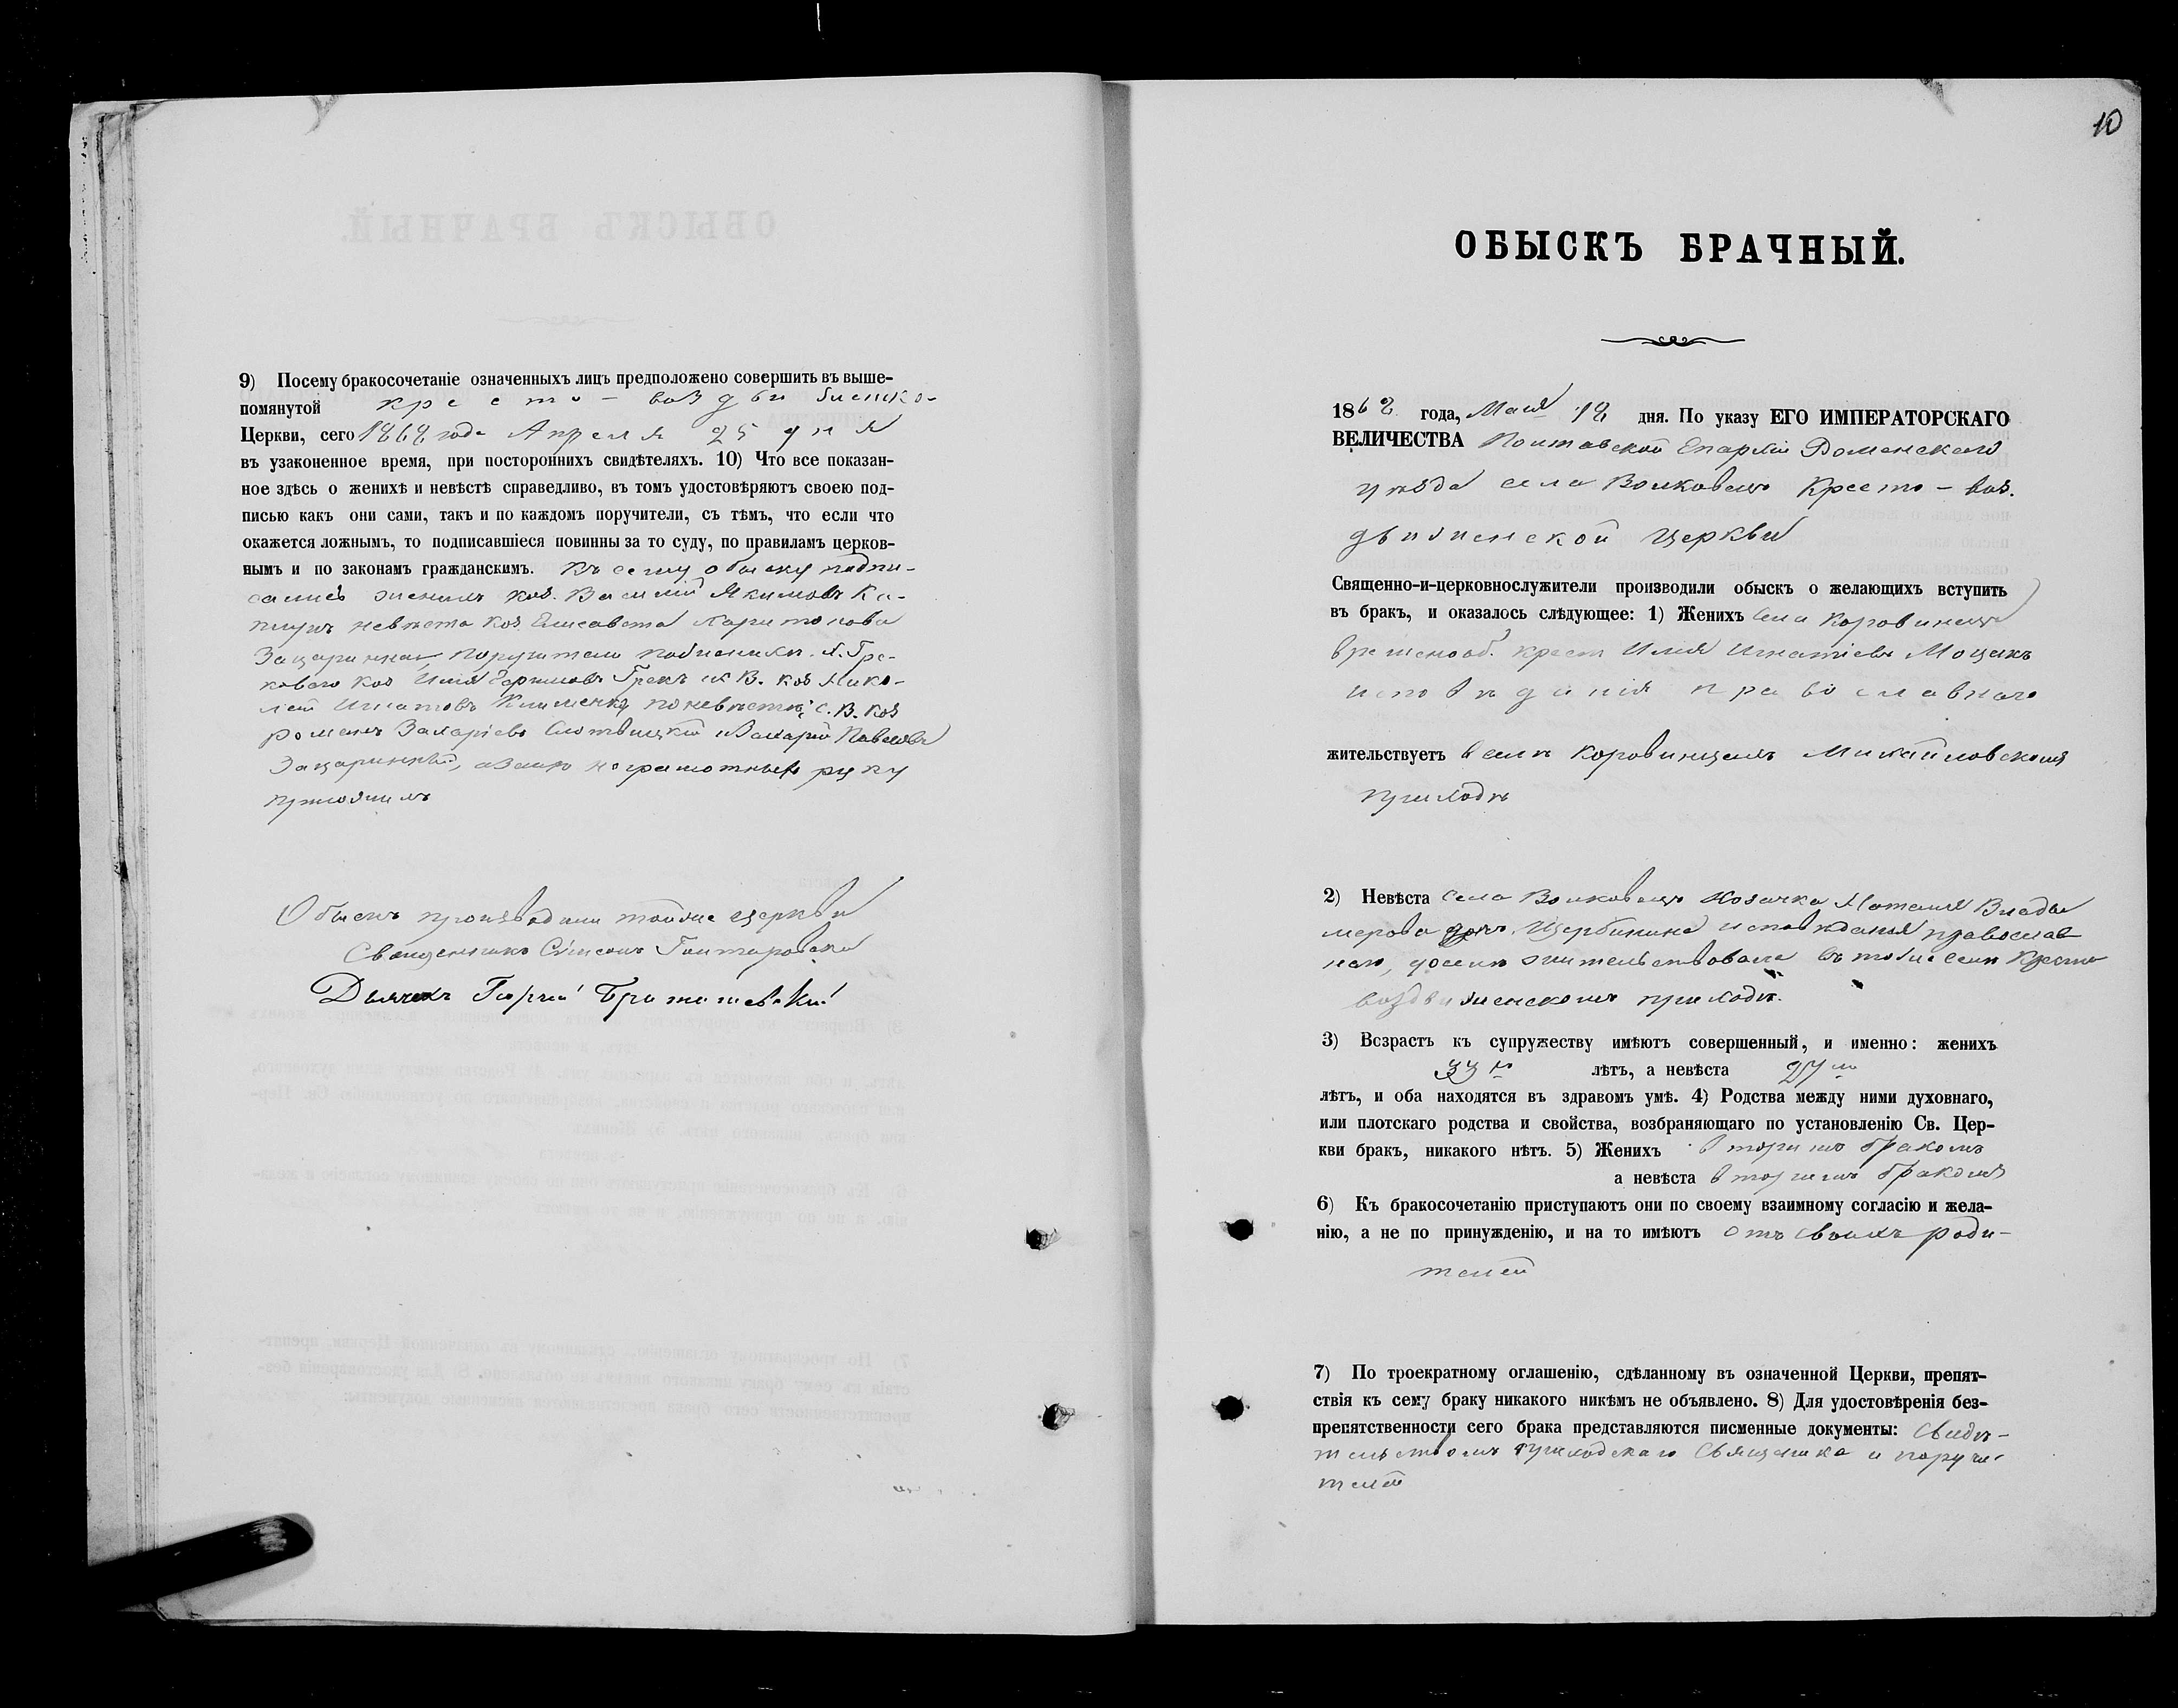 9) Посему бракосочетаніе означенныхъ лицъ предположено совершить въ выше-
помянутой кресто-воздвиженско-
Церкви, сего 1868 года Апреля 25 дня
въ узаконенное время, при постороннихъ свидѣтеляхъ. 10) Что все показан-
ное здѣсь о женихѣ и невѣстѣ справедливо, въ томъ удостовѣряютъ своею под-
писью какъ они сами, такъ и по каждомъ поручители, съ тѣмъ, что если что
окажется ложнымъ, то подписавшіеся повинны за то суду, по правиламъ церков-
нымъ и по законамъ гражданскимъ. Къ сему обыску подпи-
сались женихъ коз. Василій Якимовъ Ка-
невѣста коз. Елисавета Харитонова
Зацаринная, поручители по женихѣ.
коз Грекъ коз Нико-
лай Игнатовъ Клименко, по невѣстѣ: С. В. коз
романъ Захаріевъ и Захарій Павловъ
Зацаринный, неграмотные руку
приложилъ
Обыскъ производили тойже церкви
Священникъ Симеонъ
Дьячекъ Георгій
10
ОБЫСКЪ БРАЧНЫЙ.
1868 года, Мая 12 дня. По указу ЕГО ИМПЕРАТОРСКАГО
ВЕЛИЧЕСТВА Полтавской Епархіи Роменскаго
уѣзда села Волковецъ Кресто-воз.
движенской Церкви
Священно-и-церковнослужители производили обыскъ о желающихъ вступить
въ бракъ, и оказалось слѣдующее: 1) Женихъ села Коровинецъ
временооб. крест Илія Игнатіевъ Моцакъ
исповѣданія православнаго
жительствуетъ въ селѣ Коровинцахъ Михайловскомъ
приходѣ
2) Невѣста села Волковецъ Козачка Наталія Влади
мерова дочь Щербинина исповѣданія православ
наго, доселѣ жительствовала въ тойже селѣ Кресто
воздвиженскомъ приходѣ.
3) Возрастъ къ супружеству имѣютъ совершенный, и именно: женихъ
33 лѣтъ, а невѣста 27
лѣтъ, и оба находятся въ здравомъ умѣ. 4) Родства между ними духовнаго,
или плотскаго родства и свойства, возбраняющаго по установленію Св. Цер-
кви бракъ, никакого нѣтъ. 5) Женихъ вторимъ бракомъ
а невѣста вторимъ бракомъ
6) Къ бракосочетанію приступаютъ они по своему взаимному согласію и жела-
нію, а не по принужденію, и на то имѣютъ отъ своихъ роди-
телей
7) По троекратному оглашенію, сдѣланному въ означенной Церкви, препят-
ствія къ сему браку никакого никѣмъ не объявлено. 8) Для удостовѣренія без-
препятственности сего брака представляются писменные документы: Свидѣ-
тельствомъ приходскаго Священика и поручи-
телей